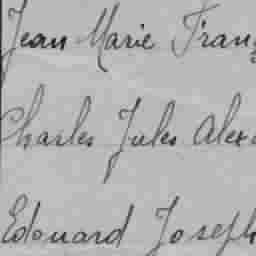 Jean Marie Franç
Charles Jules Alex
Edouard Joseph